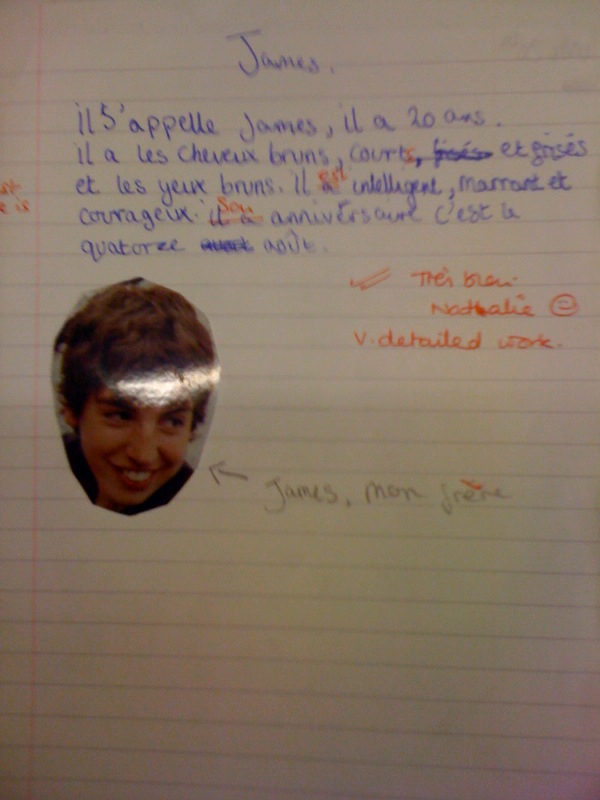 James.
il s'appelle James, il a 20 ans.
il a les cheveux bruns, courts, et frisés
et les yeux bruns. il est intelligent, marrant et
courageux. Son anniversaire c'est le
quatorze août.
Très bien
Nathalie
V. detailed work.
James, mon frère